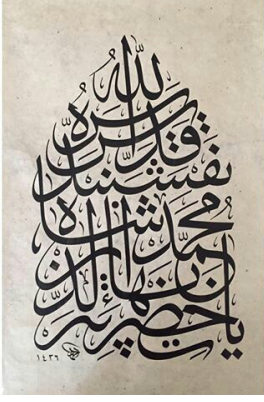 يا حضرت پير
بهاء الدين
محمد شاه
نقشبند
قدس سره
الله
١٤٣٦